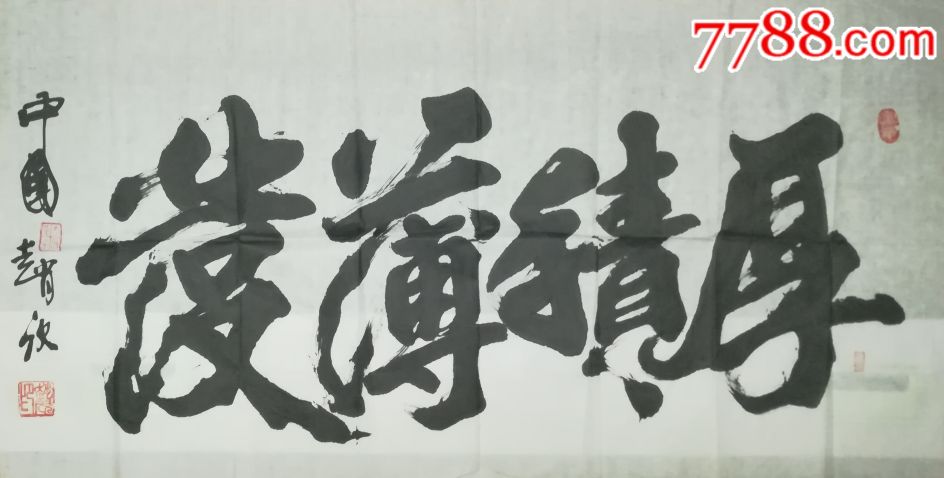 7788.com
厚積薄發
中國
趙欣